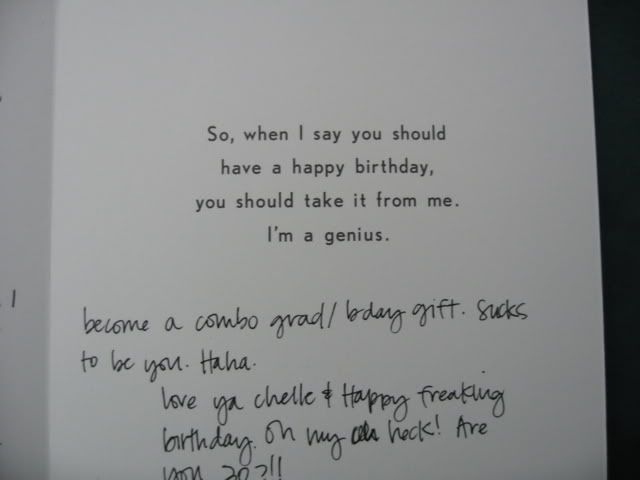 So, when I say you should
have a happy birthday,
you should take it from me.
I'm a genius.
become a combo grad/bday gift. Sucks
to be you. Haha.
love ya chelle & Happy freaking
birthday. Oh my heck! Are
you 30?!!